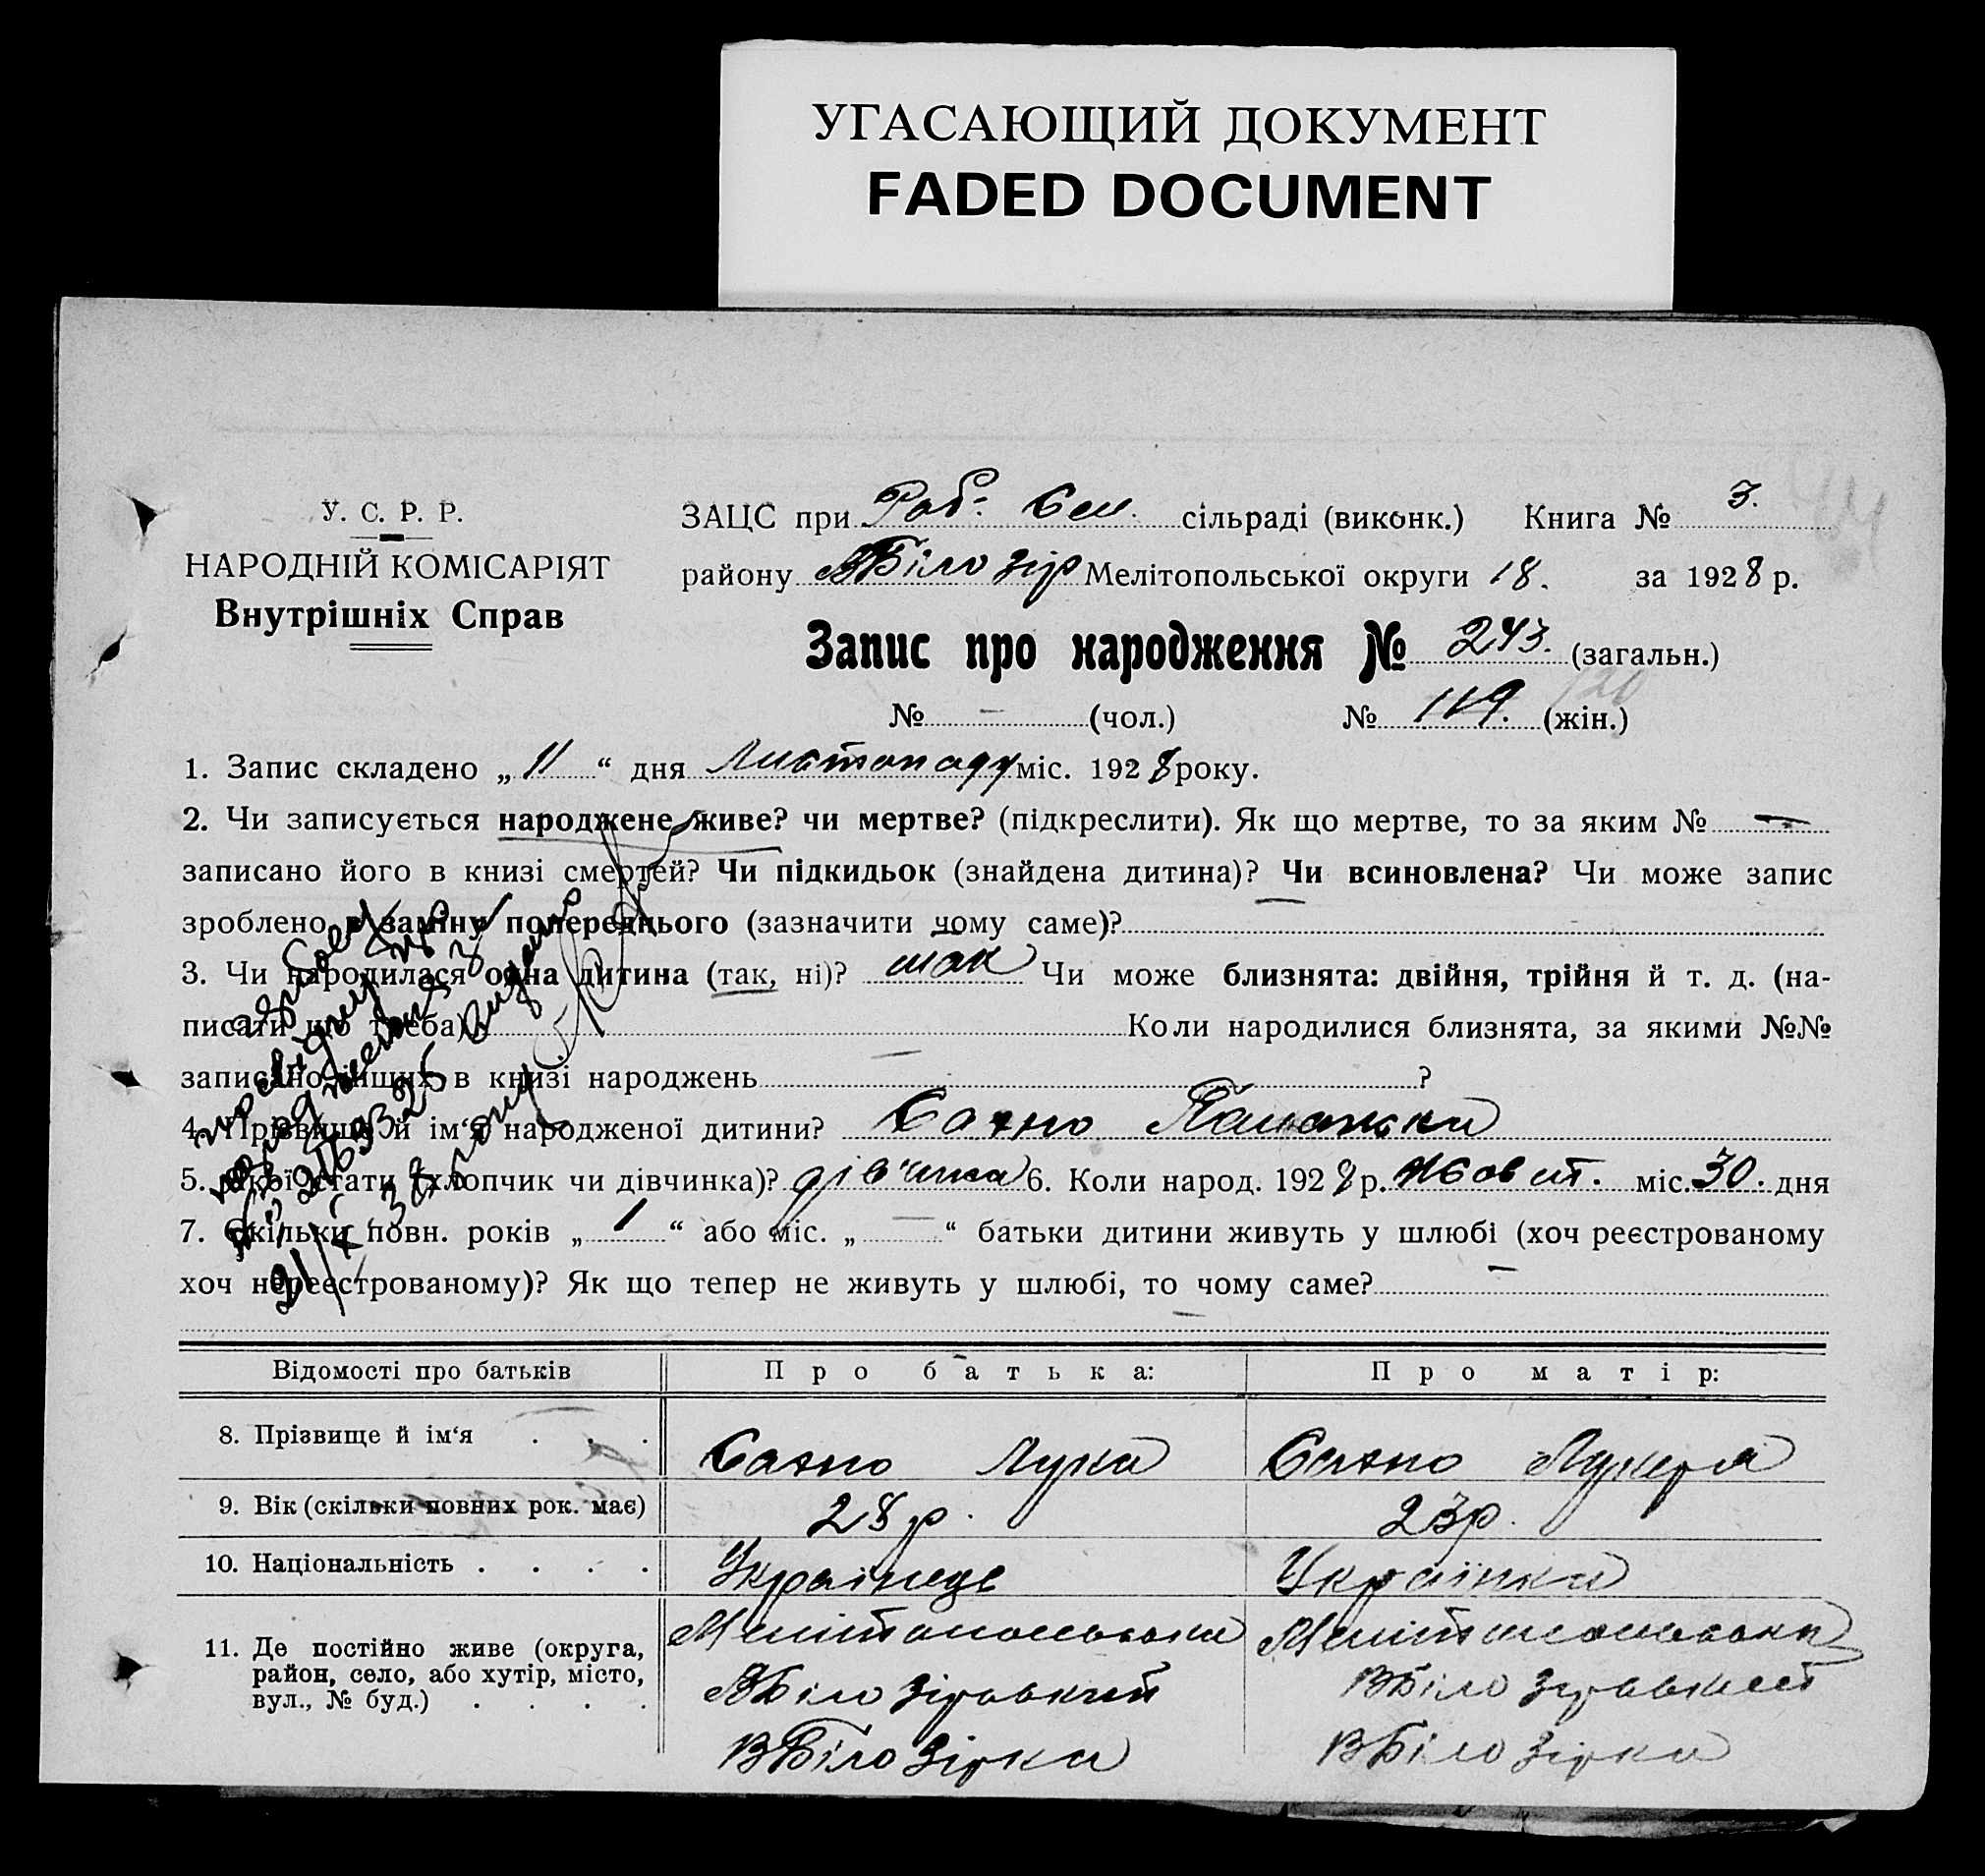 УГАСАЮЩИЙ ДОКУМЕНТ
FADED DOCUMENT
У. С. Р. Р.
НАРОДНІЙ КОМІСАРІЯТ
Внутрішніх Справ
ЗАЦС при Роб. Сел. сільраді (виконк.) Книга № 3.
району ВБілозір Мелітопольської округи 18. за 1928 р.
Запис про народження № 243. (загальн.)
№ — (чол.) № 119. (жін.) 120
1. Запис складено „11“ дня Листопаду міс. 1928 року.
2. Чи записується народжене живе? чи мертве? (підкреслити). Як що мертве, то за яким № —
записано його в книзі смертей? Чи підкидьок (знайдена дитина)? Чи всиновлена? Чи може запис
зроблено в заміну попереднього (зазначити чому саме)?
3. Чи народилася одна дитина (так, ні)? так Чи може близнята: двійня, трійня й т. д. (на-
писати що треба) Коли народилися близнята, за якими №№
записано інших в книзі народжень — ?
4. Прізвище й ім‘я народженої дитини? Сахно
5. Якої стати (хлопчик чи дівчинка)? дівчинка 6. Коли народ. 1928 р. Жовт. міс. 30. дня
7. Скільки повн. років „1“ або міс. „—“ батьки дитини живуть у шлюбі (хоч реєстрованому
хоч нереєстрованому)? Як що тепер не живуть у шлюбі, то чому саме? —
народження
Видано
Відомості про батьків Про батька: Про матір:
8. Прізвище й ім‘я Сахно Лука Сахно Лукеря
9. Вік (скільки повних рок. має) 28 р. 23 р.
10. Національність Українець Українка
11. Де постійно живе (округа, Мелітопольська Мелітопольська
район, село, або хутір, місто, ВБілозірський ВБілозірський
вул., № буд.) ВБілозірка ВБілозірка